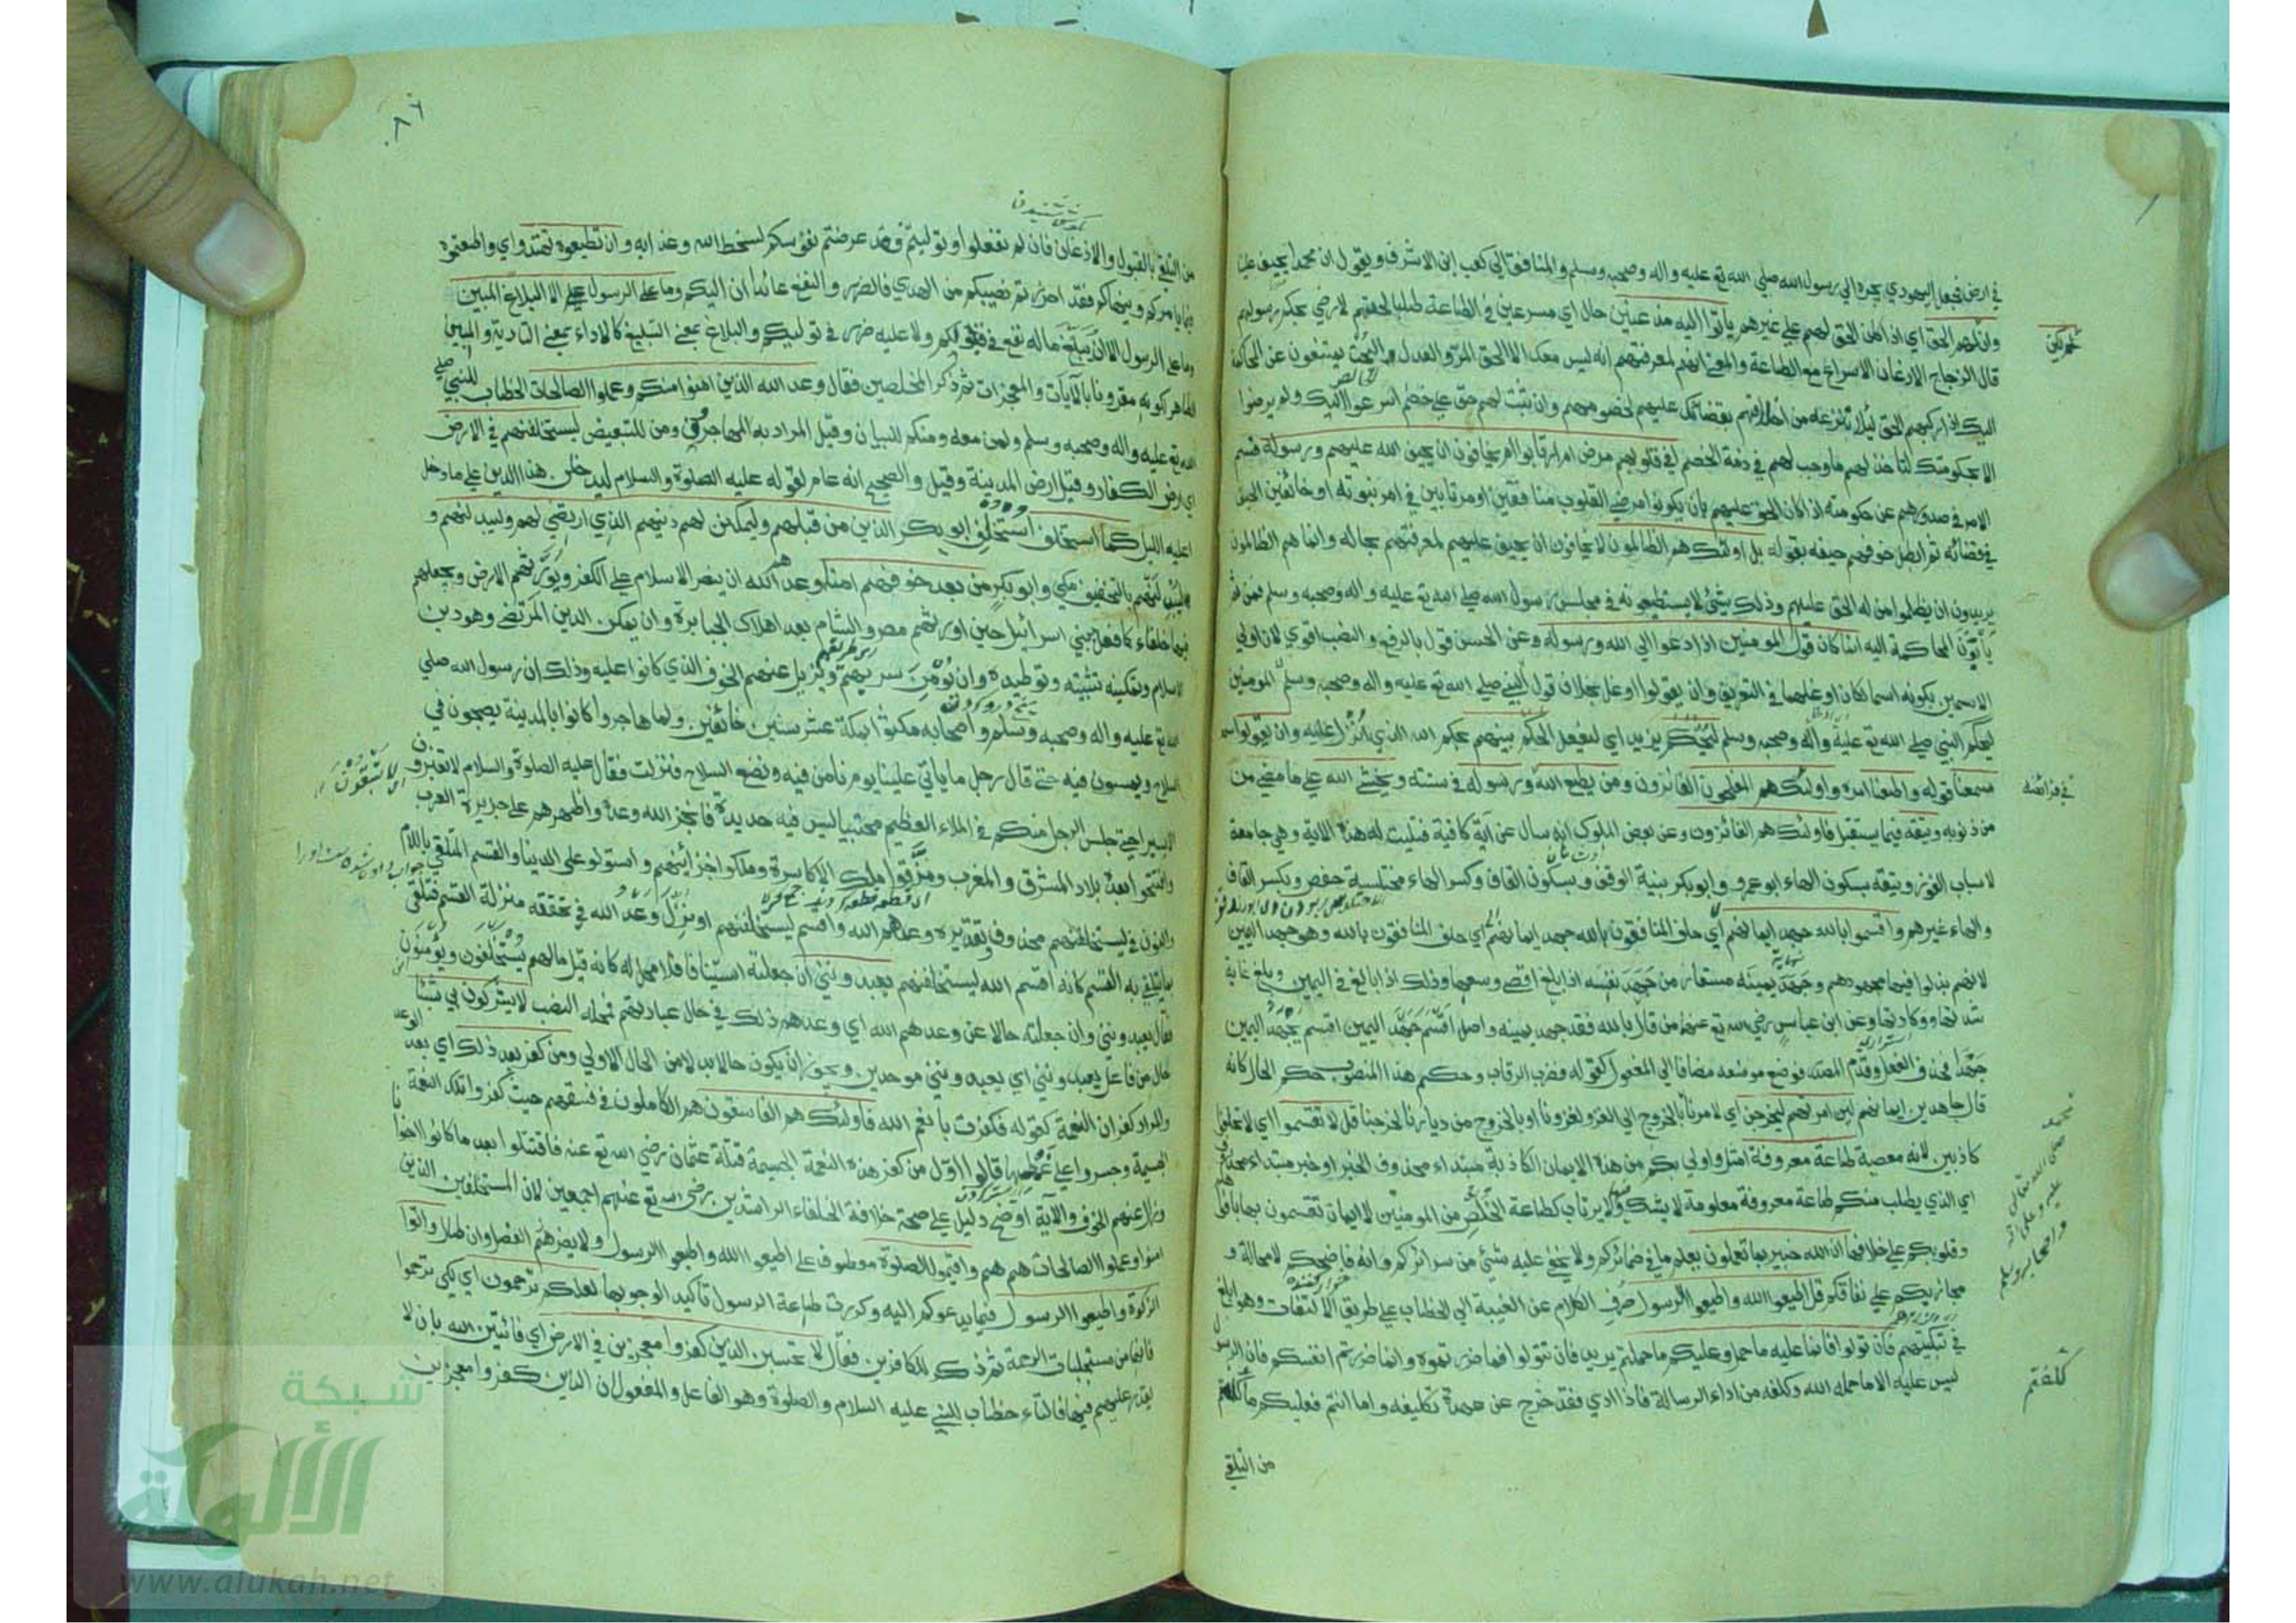 في ارض فجعل اليهودي يجره الى رسول الله صلي الله تع عليه واله وصحبه وسلم والمنافق الي كعب ابن الاشرف ويقول ان محمدا يحيف علينا
وان يكن لهم الحق اي اذا كان الحق لهم علي غيرهم يأتوا اليه مذعنين حال اي مسرعين في الطاعة طلبا لحقهم لا رضي بحكم رسولهم
قال الزجاج الاذعان الاسراع مع الطاعة والمعني انهم لمعرفتهم انه ليس معك الا الحق المر والعدل البحت يمتنعون عن المحاكمة
اليك اذا ركبهم الحق ليلا تنزعه من احداقهم بقضائك عليهم لخصومهم وان ثبت لهم حق علي خصم اسرعوا اليك ولم يرضوا
الا بحكومتك لتأخذ لهم ما وجب لهم في ذمة الخصم افي قلوبهم مرض ام ارتابوا ام يخافون ان يحيف الله عليهم ورسوله قسم
الامر في صدورهم عن حكومته اذا كان الحق عليهم بان يكونوا مرضي القلوب منافقين او مرتابين في امر نبوته او خائفين الحيف
في قضائه ثم ابطل خوفهم حيفه بقوله بل اولئك هم الظالمون لا يخافون ان يحيف عليهم لمعرفتهم بحاله وانما هم الظالمون
يريدون ان يظلموا من له الحق عليهم وذلك شئ لا يستطيعونه في مجلس رسول الله صلي الله تع عليه واله وصحبه وسلم فمن ثم
يأبون المحاكمة اليه انما كان قول المومنين اذا دعوا الي الله ورسوله وعن الحسن قول بالرفع والنصب اقوي لان اولي
الاسمين بكونه اسما لكان اوغلهما في التعريف وان يقولوا اوغل بخلاف قول
ليحكم النبي صلي الله تع عليه واله وصحبه وسلم ليحكم يزيد اي ليفعل الحكم بينهم بحكم الله الذي انزل عليه وان يقولوا
سمعنا قوله واطعنا امره واولئك هم المفلحون الفائزون ومن يطع الله ورسوله في سننه ويخشي الله علي ما مضي من
من ذنوبه ويتقه فيما يستقبل فاولئك هم الفائزون وعن بعض الملوك انه سال عن اية كافية فتليت له هذه الاية وهي جامعة
لاسباب الفوز ويتقه بسكون الهاء ابو عمرو وابو بكر بنية الوقف وبسكون القاف وكسر الهاء مختلسة حفص وبكسر القاف
والهاء غيرهم واقسموا بالله جهد ايمانهم اي حلف المنافقون بالله جهد ايمانهم اي حلف المنافقون بالله وهو جهد اليمين
لانهم بذلوا فيها مجهودهم وجهد يمينه مستعار من جهد نفسه اذا بلغ اقصي وسعها وذلك اذا بالغ في اليمين وبلغ غاية
شدتها ووكادتها وعن ابن عباس رضي الله تع عنهما من قال بالله فقد جهد يمينه واصل اقسم جهد اليمين اقسم يجهد اليمين
جهدا فحذف الفعل وقدم المصدر فوضع موضعه مضافا الي المفعول كقوله فضرب الرقاب وحكم هذا المنصوب حكم الحال كانه
قال جاهدين ايمانهم لئن امرتهم ليخرجن اي لئن امرتنا بالخروج الي الغزو لغزونا او بالخروج من ديارنا لخرجنا قل لا تقسموا اي لا تحلفوا
كاذبين لانه معصية طاعة معروفة امثل واولي بكم من هذه الايمان الكاذبة مبتداء محذوف الخبر او خبر مبتداء محذوف
اي الذي يطلب منكم طاعة معروفة معلومة لا يشك فيها ولا يرتاب كطاعة الخلص من المومنين لا ايمان تقسمون بها بافواهكم
وقلوبكم علي خلافها ان الله خبير بما تعملون يعلم ما في ضمائركم ولا يخفي عليه شئ من سرائركم وانه فاضحكم لا محالة و
مجازيكم علي نفاقكم قل اطيعوا الله واطيعوا الرسول صرف الكلام عن الغيبة الي الخطاب علي طريق الالتفات وهو ابلغ
في تبكيتهم فان تولوا فانما عليه ما حمل وعليكم ما حملتم يريد فان تتولوا فما ضررتموه وانما ضررتم انفسكم فان الرسول
ليس عليه الا ما حمله الله وكلفه من اداء الرسالة فاذا ادي فقد خرج عن عهدة تكليفه واما انتم فعليكم ما كلفتم
من التلقي
كلفتم
٨٦
من التلقي بالقبول والاذعان فان لم تفعلوا وتوليتم فقد عرضتم نفوسكم لسخط الله وعذابه وان تطيعوه تهتدوا اي واطعتموه
فيما يامركم وينهاكم فقد احرزتم نصيبكم من الهدي فالضرر والنفع عائدان اليكم وما علي الرسول الا البلاغ المبين
وما علي الرسول الا ان يبلغ ما له نفع في قبولكم ولا عليه ضرر في توليكم والبلاغ بمعني التبليغ كالاداء بمعني التادية والمبين
الظاهر لكونه مقرونا بالآيات والمعجزات ثم ذكر المخلصين فقال وعد الله الذين امنوا منكم وعملوا الصالحات الخطاب للنبي صلي
الله تع عليه واله وصحبه وسلم ولمن معه ومنكم للبيان وقيل المراد به المهاجرون ومن للتبعيض ليستخلفنهم في الارض
اي ارض الكفار وقيل ارض المدينة وقيل والصحيح انه عام لقوله عليه الصلوة والسلام ليدخلن هذا الدين علي ما دخل
عليه الليل كما استخلف استخلف ابو بكر الذين من قبلهم وليمكنن لهم دينهم الذي ارتضي لهم وليبدلنهم و
ليبدلنهم بالتخفيف مكي وابو بكر من بعد خوفهم امنا وعدهم الله ان ينصر الاسلام علي الكفر ويورثهم الارض ويجعلهم
فيها خلفاء كما فعل ببني اسرائيل حين اورثهم مصر والشام بعد اهلاك الجبابرة وان يمكن الدين المرتضي وهو دين
الاسلام وتمكينه تثبيته وتوطيده وان يؤمن سربهم ويزيل عنهم الخوف الذي كانوا عليه وذلك ان رسول الله صلي
الله تع عليه واله وصحبه وسلم واصحابه مكثوا بمكة عشر سنين خائفين ولما هاجروا كانوا بالمدينة يصبحون في
السلاح ويمسون فيه حتي قال رجل ما ياتي علينا يوم نامن فيه ونضع السلاح فنزلت فقال عليه الصلوة والسلام لا تغبرون
الا يسيرا حتي يجلس الرجل منكم في الملاء العظيم محتبيا ليس فيه حديدة فانجز الله وعده واظهرهم علي جزيرة العرب
وافتتحوا ابعد بلاد المشرق والمغرب ومزقوا ملك الاكاسرة وملكوا خزائنهم واستولوا علي الدنيا والقسم المتلقي باللام
والنون في ليستخلفنهم محذوف تقديره وعدهم الله واقسم ليستخلفنهم او نزل وعد الله في تحققه منزلة القسم فتلقي
بما يتلقي به القسم كانه اقسم الله ليستخلفنهم يعبدونني ان جعلته استينافا فلا محل له كانه قيل ما لهم يستخلفون ويؤمنون
فقال يعبدونني وان جعلته حالا عن وعدهم الله اي وعدهم ذلك في حال عبادتهم فمحله النصب لا يشركون بي شيئا
حال من فاعل يعبدونني اي يعبدونني موحدين ويجوز ان يكون حالا بدلا من الحال الاولي ومن كفر بعد ذلك اي بعد الوعد
والمراد كفران النعمة كقوله فكفرت بانعم الله فاولئك هم الفاسقون هم الكاملون في فسقهم حيث كفروا تلك النعمة
الجسيمة وجسروا علي غمطها قالوا اول من كفر هذه النعمة الجسيمة قتلة عثمان رضي الله تع عنه فاقتتلوا بعد ما كانوا اخوانا
وزال عنهم الخوف والاية اوضح دليل علي صحة خلافة الخلفاء الراشدين رضي الله تع عنهم اجمعين لان المستخلفين الذين
امنوا وعملوا الصالحات هم هم واقيموا الصلوة معطوف علي اطيعوا الله واطيعوا الرسول ولا يضرهم الفصل وان طال واتوا
الزكوة واطيعوا الرسول فيما يدعوكم اليه وكررت طاعة الرسول تاكيدا لوجوبها لعلكم ترحمون اي لكي ترحموا
فانها من مستجلبات الرحمة ثم ذكر الكافرين فقال لا تحسبن الذين كفروا معجزين في الارض اي فائتين الله بان لا
يقدر عليهم فيها فالتاء خطاب للنبي عليه السلام والصلوة وهو الفاعل والمفعولان الذين كفروا معجزين
شبكة
الألوكة
www.alukah.net